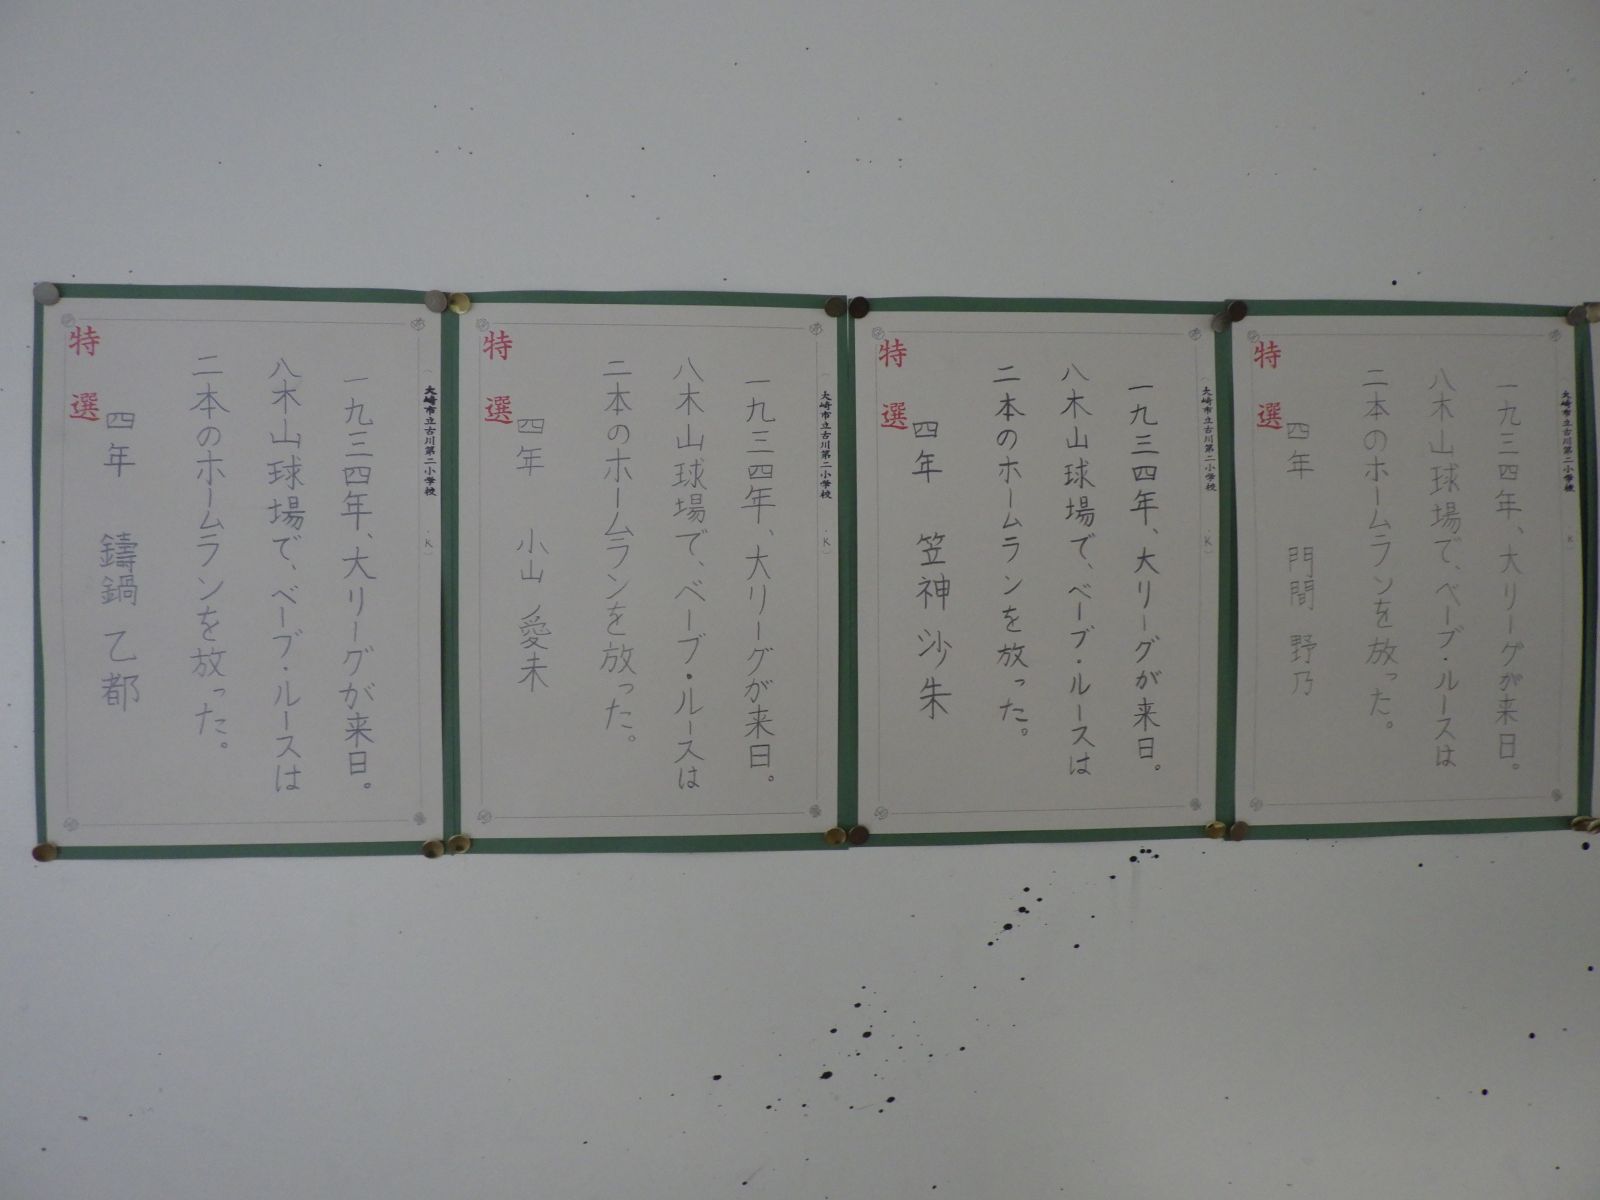 大崎市立古川第二小学校
・K）
一九三四年、大リーグが来日。
八木山球場で、ベーブ・ルースは
二本のホームランを放った。
四年　鑄鍋　乙都
特選
大崎市立古川第二小学校
・K）
一九三四年、大リーグが来日。
八木山球場で、ベーブ・ルースは
二本のホームランを放った。
四年　小山　愛未
特選
大崎市立古川第二小学校
・K）
一九三四年、大リーグが来日。
八木山球場で、ベーブ・ルースは
二本のホームランを放った。
四年　笠神　沙朱
特選
大崎市立古川第二小学校
・K）
一九三四年、大リーグが来日。
八木山球場で、ベーブ・ルースは
二本のホームランを放った。
四年　門間　野乃
特選